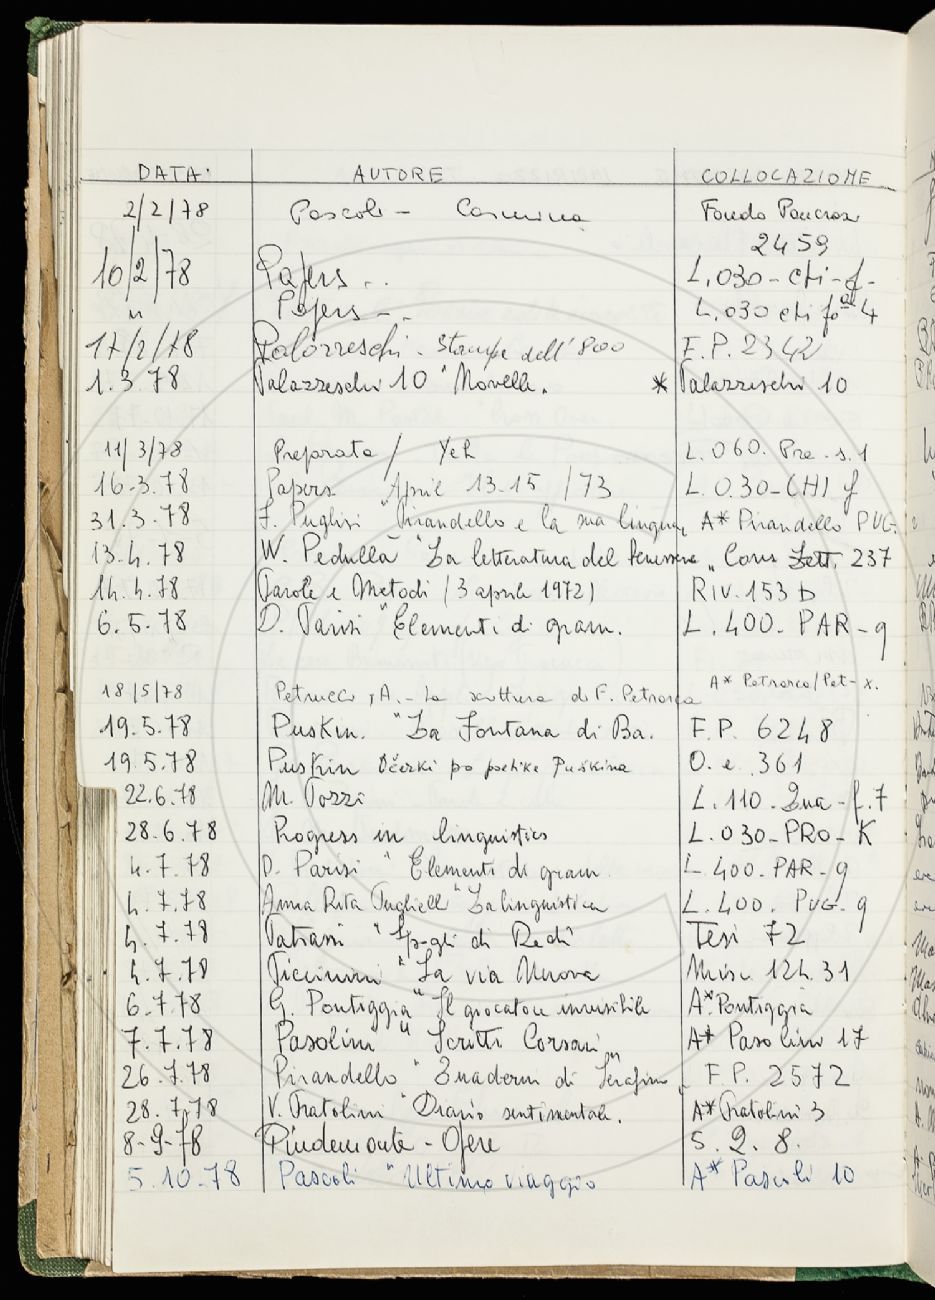 DATA: AUTORE COLLOCAZIONE
2/2/78 Pascoli - Carmina Fondo Pancrazi
2459
10/2/78 Papers .. L.030-CHI-f-
" Papers - . L.030 CHI 4
17/2/78 Palazzeschi - Stampe dell'800 F.P. 2342
1.3.78 Palazzeschi 10 "Novelle. * Palazzeschi 10
11/3/78 Preparata / Yeh L.060. Pre.s.1
16.3.78 Papers April 13-15 /73 L.030-CHI f
31.3.78 F. Puglisi "Pirandello e la sua lingua A* Pirandello PUG.
13.4.78 W. Pedullà "La letteratura del benessere" Cons Lett. 237
14.4.78 Parole e Metodi (3 aprile 1972) Riv. 153 b
6.5.78 D. Parisi "Elementi di gram. L.400-PAR-g
18/5/78 Petrucci, A.- La scrittura di F. Petrarca A* Petrarca/Pet- x.
19.5.78 Puskin. "La Fontana di Ba. F.P. 6248
19.5.78 Puskin Očerki po poetike Puškina O.e.361
22.6.78 M. Pozzi L.110.Qua-f.7
28.6.78 Progress in linguistics L.030-PRO-K
4.7.78 D. Parisi "Elementi di gram. L.400-PAR-g
4.7.78 Anna Rita Puglielli "La linguistica L.400. PUG-g
4.7.78 di Redi" Tesi 72
4.7.78 Piccinini "La via Nuova Misc. 124.31
6.7.78 G. Pontiggia "Il giocatore invisibile A* Pontiggia
7.7.78 Pasolini "Scritti Corsari" A* Pasolini 17
26.7.78 Pirandello "Quaderni di Serafino" F.P. 2572
28.7.78 V. Pratolini "Diario sentimentale. A* Pratolini 3
8-9-78 Pindemonte - Opere S.2.8.
5.10.78 Pascoli "Ultimo viaggio A* Pascoli 10